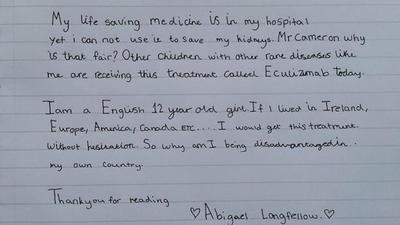 My life saving medicine is in my hospital
yet i can not use it to save my kidneys. Mr Cameron why
is that fair? Other children with other rare diseases like
me are receiving this treatment called Eculizamab today.
I am a English 12 year old girl. If I lived in Ireland,
Europe, America, Canada ETC.... I would get this treatment
without hesitation. So why am I being disadvantaged in
my own country.
Thankyou for reading
♡Abigael Longfellow.♡